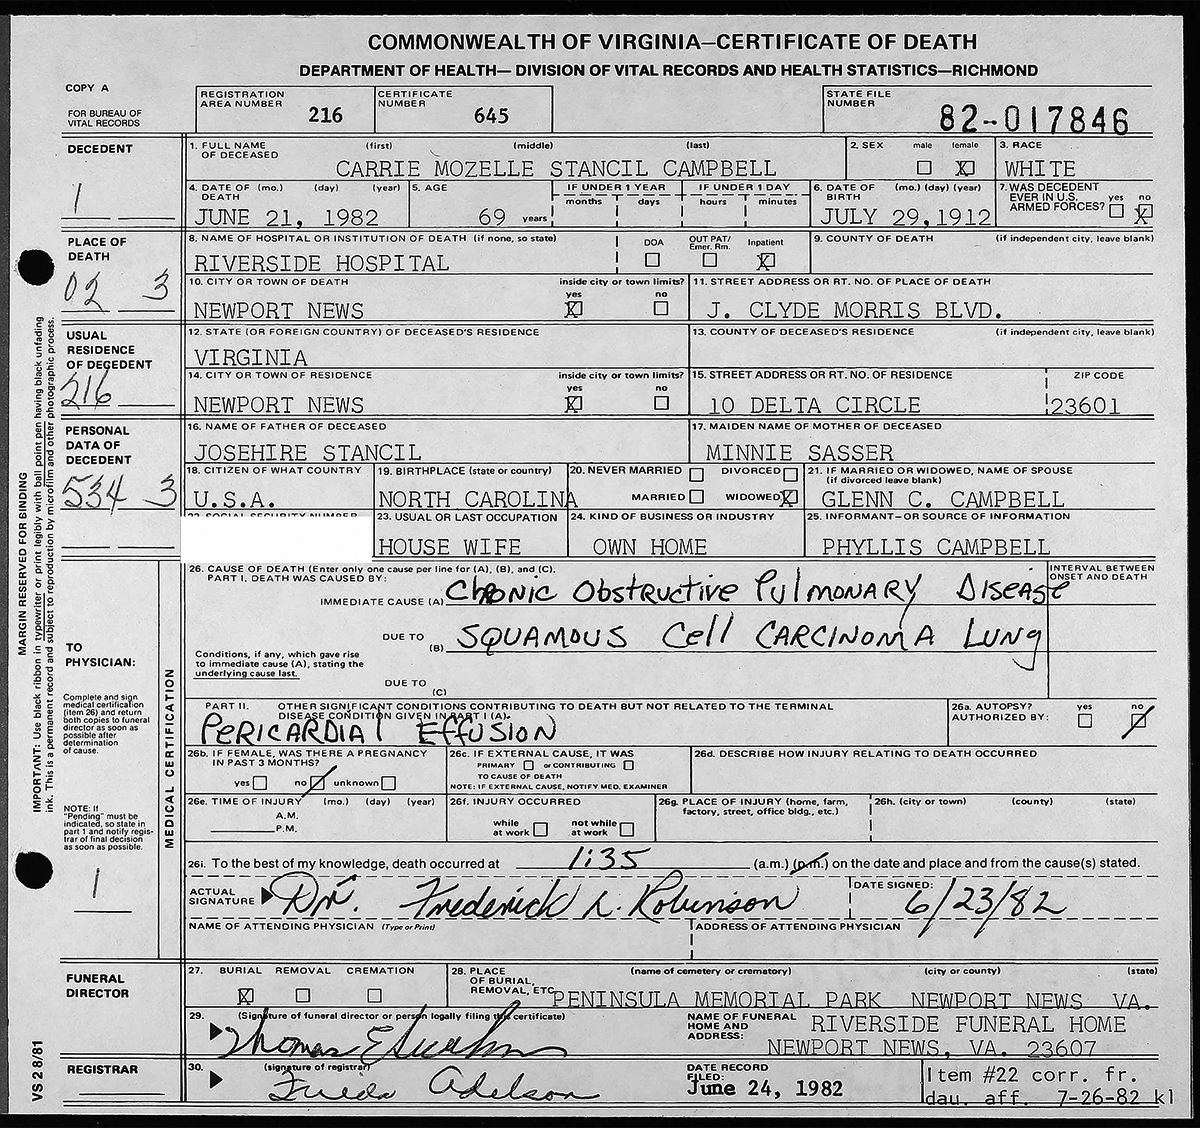 COMMONWEALTH OF VIRGINIA—CERTIFICATE OF DEATH
DEPARTMENT OF HEALTH— DIVISION OF VITAL RECORDS AND HEALTH STATISTICS—RICHMOND
COPY A
FOR BUREAU OF VITAL RECORDS
REGISTRATION AREA NUMBER 216
CERTIFICATE NUMBER 645
STATE FILE NUMBER 82-017846
DECEDENT
1
1. FULL NAME OF DECEASED (first) (middle) (last)
CARRIE MOZELLE STANCIL CAMPBELL
2. SEX male female X
3. RACE
WHITE
4. DATE OF DEATH (mo.) (day) (year)
JUNE 21, 1982
5. AGE
69 years
IF UNDER 1 YEAR
months days
IF UNDER 1 DAY
hours minutes
6. DATE OF BIRTH (mo.) (day) (year)
JULY 29,1912
7. WAS DECEDENT EVER IN U.S. ARMED FORCES? yes no X
PLACE OF DEATH
02 3
8. NAME OF HOSPITAL OR INSTITUTION OF DEATH (if none, so state)
RIVERSIDE HOSPITAL
DOA OUT PAT/ Emer. Rm. Inpatient X
9. COUNTY OF DEATH (if independent city, leave blank)
10. CITY OR TOWN OF DEATH
NEWPORT NEWS
inside city or town limits?
yes X no
11. STREET ADDRESS OR RT. NO. OF PLACE OF DEATH
J. CLYDE MORRIS BLVD.
USUAL RESIDENCE OF DECEDENT
216
12. STATE (OR FOREIGN COUNTRY) OF DECEASED'S RESIDENCE
VIRGINIA
13. COUNTY OF DECEASED'S RESIDENCE (if independent city, leave blank)
14. CITY OR TOWN OF RESIDENCE
NEWPORT NEWS
inside city or town limits?
yes X no
15. STREET ADDRESS OR RT. NO. OF RESIDENCE
10 DELTA CIRCLE
ZIP CODE
23601
PERSONAL DATA OF DECEDENT
534 3
16. NAME OF FATHER OF DECEASED
JOSEHIRE STANCIL
17. MAIDEN NAME OF MOTHER OF DECEASED
MINNIE SASSER
18. CITIZEN OF WHAT COUNTRY
U.S.A.
19. BIRTHPLACE (state or country)
NORTH CAROLINA
20. NEVER MARRIED DIVORCED
MARRIED WIDOWED X
21. IF MARRIED OR WIDOWED, NAME OF SPOUSE
(if divorced leave blank)
GLENN C. CAMPBELL
22. SOCIAL SECURITY NUMBER
23. USUAL OR LAST OCCUPATION
HOUSE WIFE
24. KIND OF BUSINESS OR INDUSTRY
OWN HOME
25. INFORMANT–OR SOURCE OF INFORMATION
PHYLLIS CAMPBELL
MARGIN RESERVED FOR BINDING
IMPORTANT: Use black ribbon in typewriter or print legibly with ball point pen having black unfading
ink. This is a permanent record and subject to reproduction by microfilm and other photographic process.
TO PHYSICIAN:
Complete and sign
medical certification
(item 26) and return
both copies to funeral
director as soon as
possible after
determination
of cause.
NOTE: If
"Pending" must be
indicated, so state in
part 1 and notify regis-
trar of final decision
as soon as possible.
1
MEDICAL CERTIFICATION
26. CAUSE OF DEATH (Enter only one cause per line for (A), (B), and (C).
PART I. DEATH WAS CAUSED BY:
INTERVAL BETWEEN ONSET AND DEATH
IMMEDIATE CAUSE (A) Chronic Obstructive Pulmonary Disease
DUE TO (B) SQUAMOUS Cell CARCINOMA LUNG
Conditions, if any, which gave rise
to immediate cause (A), stating the
underlying cause last.
DUE TO (C)
PART II. OTHER SIGNIFICANT CONDITIONS CONTRIBUTING TO DEATH BUT NOT RELATED TO THE TERMINAL
DISEASE CONDITION GIVEN IN PART I (A).
PERICARDIAL EFFUSION
26a. AUTOPSY? AUTHORIZED BY: yes no
26b. IF FEMALE, WAS THERE A PREGNANCY
IN PAST 3 MONTHS?
yes no unknown
26c. IF EXTERNAL CAUSE, IT WAS
PRIMARY or CONTRIBUTING
TO CAUSE OF DEATH
NOTE: IF EXTERNAL CAUSE, NOTIFY MED. EXAMINER
26d. DESCRIBE HOW INJURY RELATING TO DEATH OCCURRED
26e. TIME OF INJURY (mo.) (day) (year)
A.M.
P.M.
26f. INJURY OCCURRED
while at work not while at work
26g. PLACE OF INJURY (home, farm,
factory, street, office bldg., etc.)
26h. (city or town) (county) (state)
26i. To the best of my knowledge, death occurred at 1:35 (a.m.) (p.m.) on the date and place and from the cause(s) stated.
ACTUAL SIGNATURE Dr. Frederick L. Robinson
DATE SIGNED: 6/23/82
NAME OF ATTENDING PHYSICIAN (Type or Print)
ADDRESS OF ATTENDING PHYSICIAN
FUNERAL DIRECTOR
27. BURIAL REMOVAL CREMATION
X
28. PLACE OF BURIAL, REMOVAL, ETC. (name of cemetery or crematory) (city or county) (state)
PENINSULA MEMORIAL PARK NEWPORT NEWS VA.
29. (Signature of funeral director or person legally filing this certificate)
Thomas E
NAME OF FUNERAL HOME AND ADDRESS:
RIVERSIDE FUNERAL HOME
NEWPORT NEWS, VA. 23607
REGISTRAR
30. (signature of registrar)
Frieda Adelson
DATE RECORD FILED:
June 24, 1982
Item #22 corr. fr.
dau. aff. 7-26-82 kl
VS 2 8/81